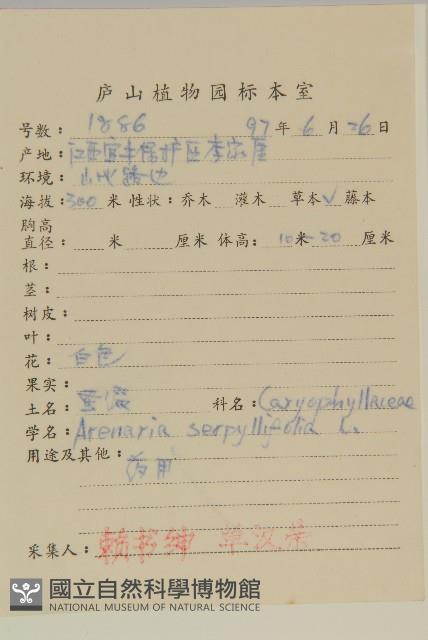 庐山植物园标本室
号数: 1886 97年 6月 26日
产地: 江西宜丰保护区李家屋
环境: 山地路边
海拔: 300 米 性状: 乔木 灌木 草本✓ 藤本
胸高
直径: 米 厘米 体高: 10米-20 厘米
根:
茎:
树皮:
叶:
花: 白色
果实:
土名: 蚤缀 科名: Caryophyllaceae
学名: Arenaria serpyllifolia L.
用途及其他: 药用
采集人: 赖书绅 单汉荣
國立自然科學博物館
NATIONAL MUSEUM OF NATURAL SCIENCE